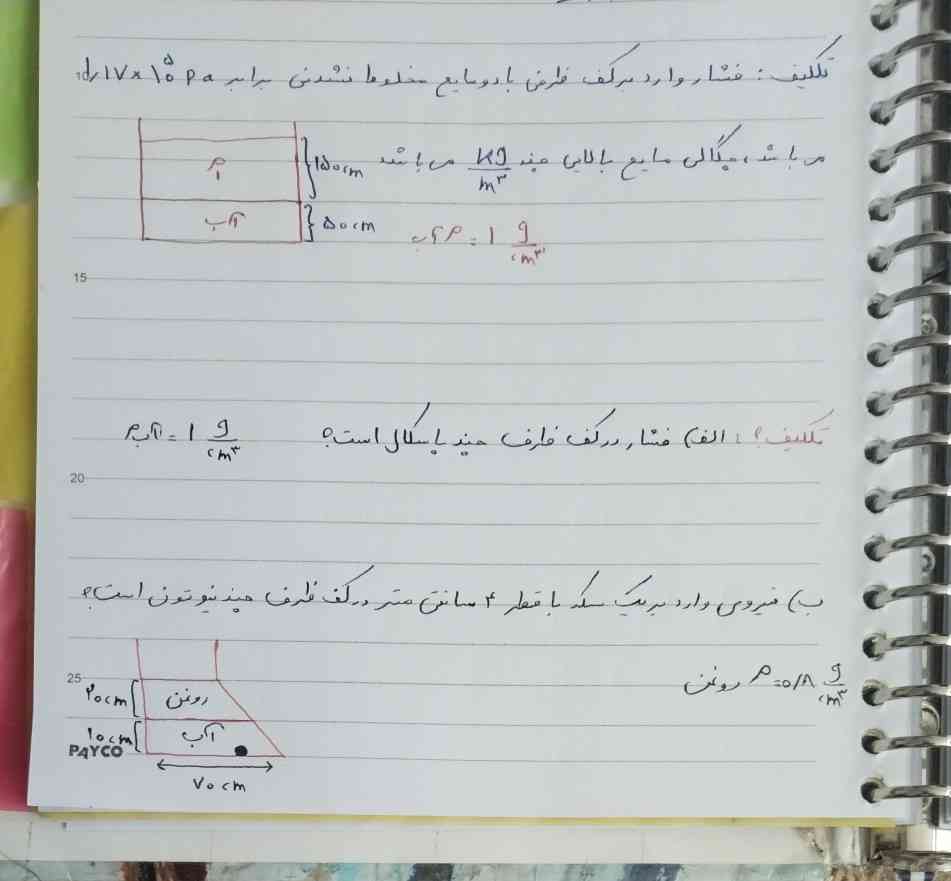 تکلیف: فشار وارد بر کف ظرفی با دو مایع مخلوط نشدنی برابر ۱/۱۷×۱۰⁵ pa
می باشد، چگالی مایع بالایی چند kg/m³ می باشد
ρ₁
۱۵۰cm
آب
۵۰cm
ρ آب = ۱ g/cm³
15
تکلیف۲: الف) فشار در کف ظرف چند پاسکال است؟ ρ آب = ۱ g/cm³
20
ب) نیروی وارد بر یک سکه با قطر ۴ سانتی متر در کف ظرف چند نیوتون است؟
25
ρ روغن = ۰/۸ g/cm³
۲۰cm
روغن
۱۰cm
آب
PAYCO
۷۰cm